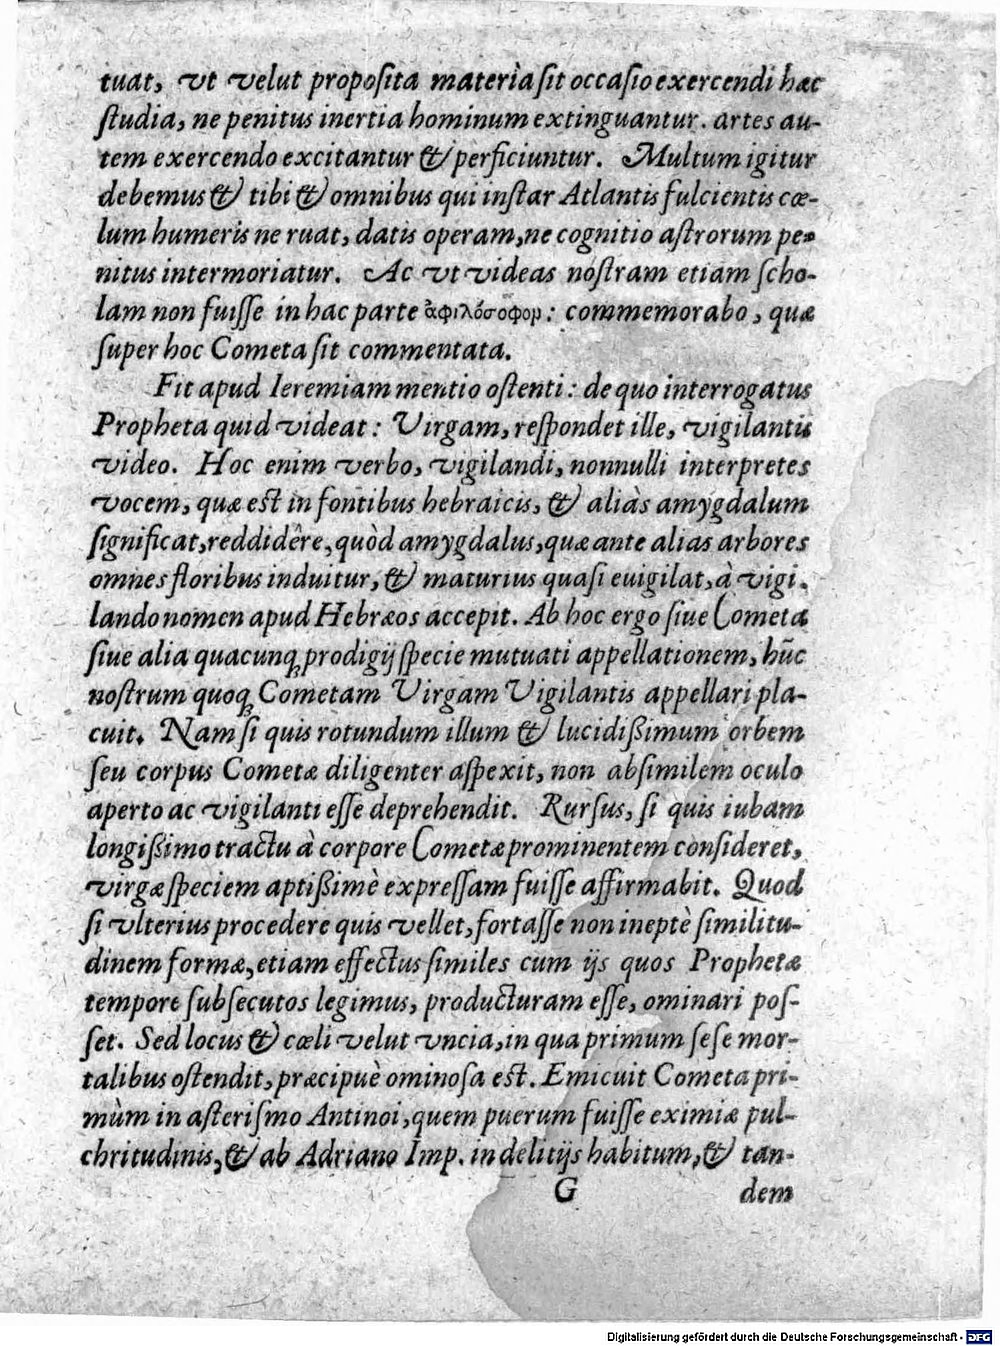 tuat, vt velut proposita materia sit occasio exercendi hæc
studia, ne penitus inertia hominum extinguantur. artes au-
tem exercendo excitantur & perficiuntur. Multum igitur
debemus & tibi & omnibus qui instar Atlantis fulcientis cœ-
lum humeris ne ruat, datis operam, ne cognitio astrorum pe-
nitus intermoriatur. Ac vt videas nostram etiam scho-
lam non fuisse in hac parte ἀφιλόσοφον: commemorabo, quæ
super hoc Cometa sit commentata.
Fit apud Ieremiam mentio ostenti: de quo interrogatus
Propheta quid videat: Virgam, respondet ille, vigilantis
video. Hoc enim verbo, vigilandi, nonnulli interpretes
vocem, quæ est in fontibus hebraicis, & aliàs amygdalum
significat, reddidêre, quòd amygdalus, quæ ante alias arbores
omnes floribus induitur, & maturius quasi euigilat, à vigi-
lando nomen apud Hebræos accepit. Ab hoc ergo siue Cometa
siue alia quacunq; prodigij specie mutuati appellationem, hūc
nostrum quoq; Cometam Virgam Vigilantis appellari pla-
cuit. Nam si quis rotundum illum & lucidißimum orbem
seu corpus Cometæ diligenter aspexit, non absimilem oculo
aperto ac vigilanti esse deprehendit. Rursus, si quis iubam
longißimo tractu à corpore Cometæ prominentem consideret,
virgæ speciem aptißimè expressam fuisse affirmabit. Quod
si vlterius procedere quis vellet, fortasse non ineptè similitu-
dinem formæ, etiam effectus similes cum ijs quos Prophetæ
tempore subsecutos legimus, producturam esse, ominari pos-
set. Sed locus & cœli velut vncia, in qua primum sese mor-
talibus ostendit, præcipuè ominosa est. Emicuit Cometa pri-
mùm in asterismo Antinoi, quem puerum fuisse eximiæ pul-
chritudinis, & ab Adriano Imp. in delitijs habitum, & tan-
G dem
Digitalisierung gefördert durch die Deutsche Forschungsgemeinschaft - DFG